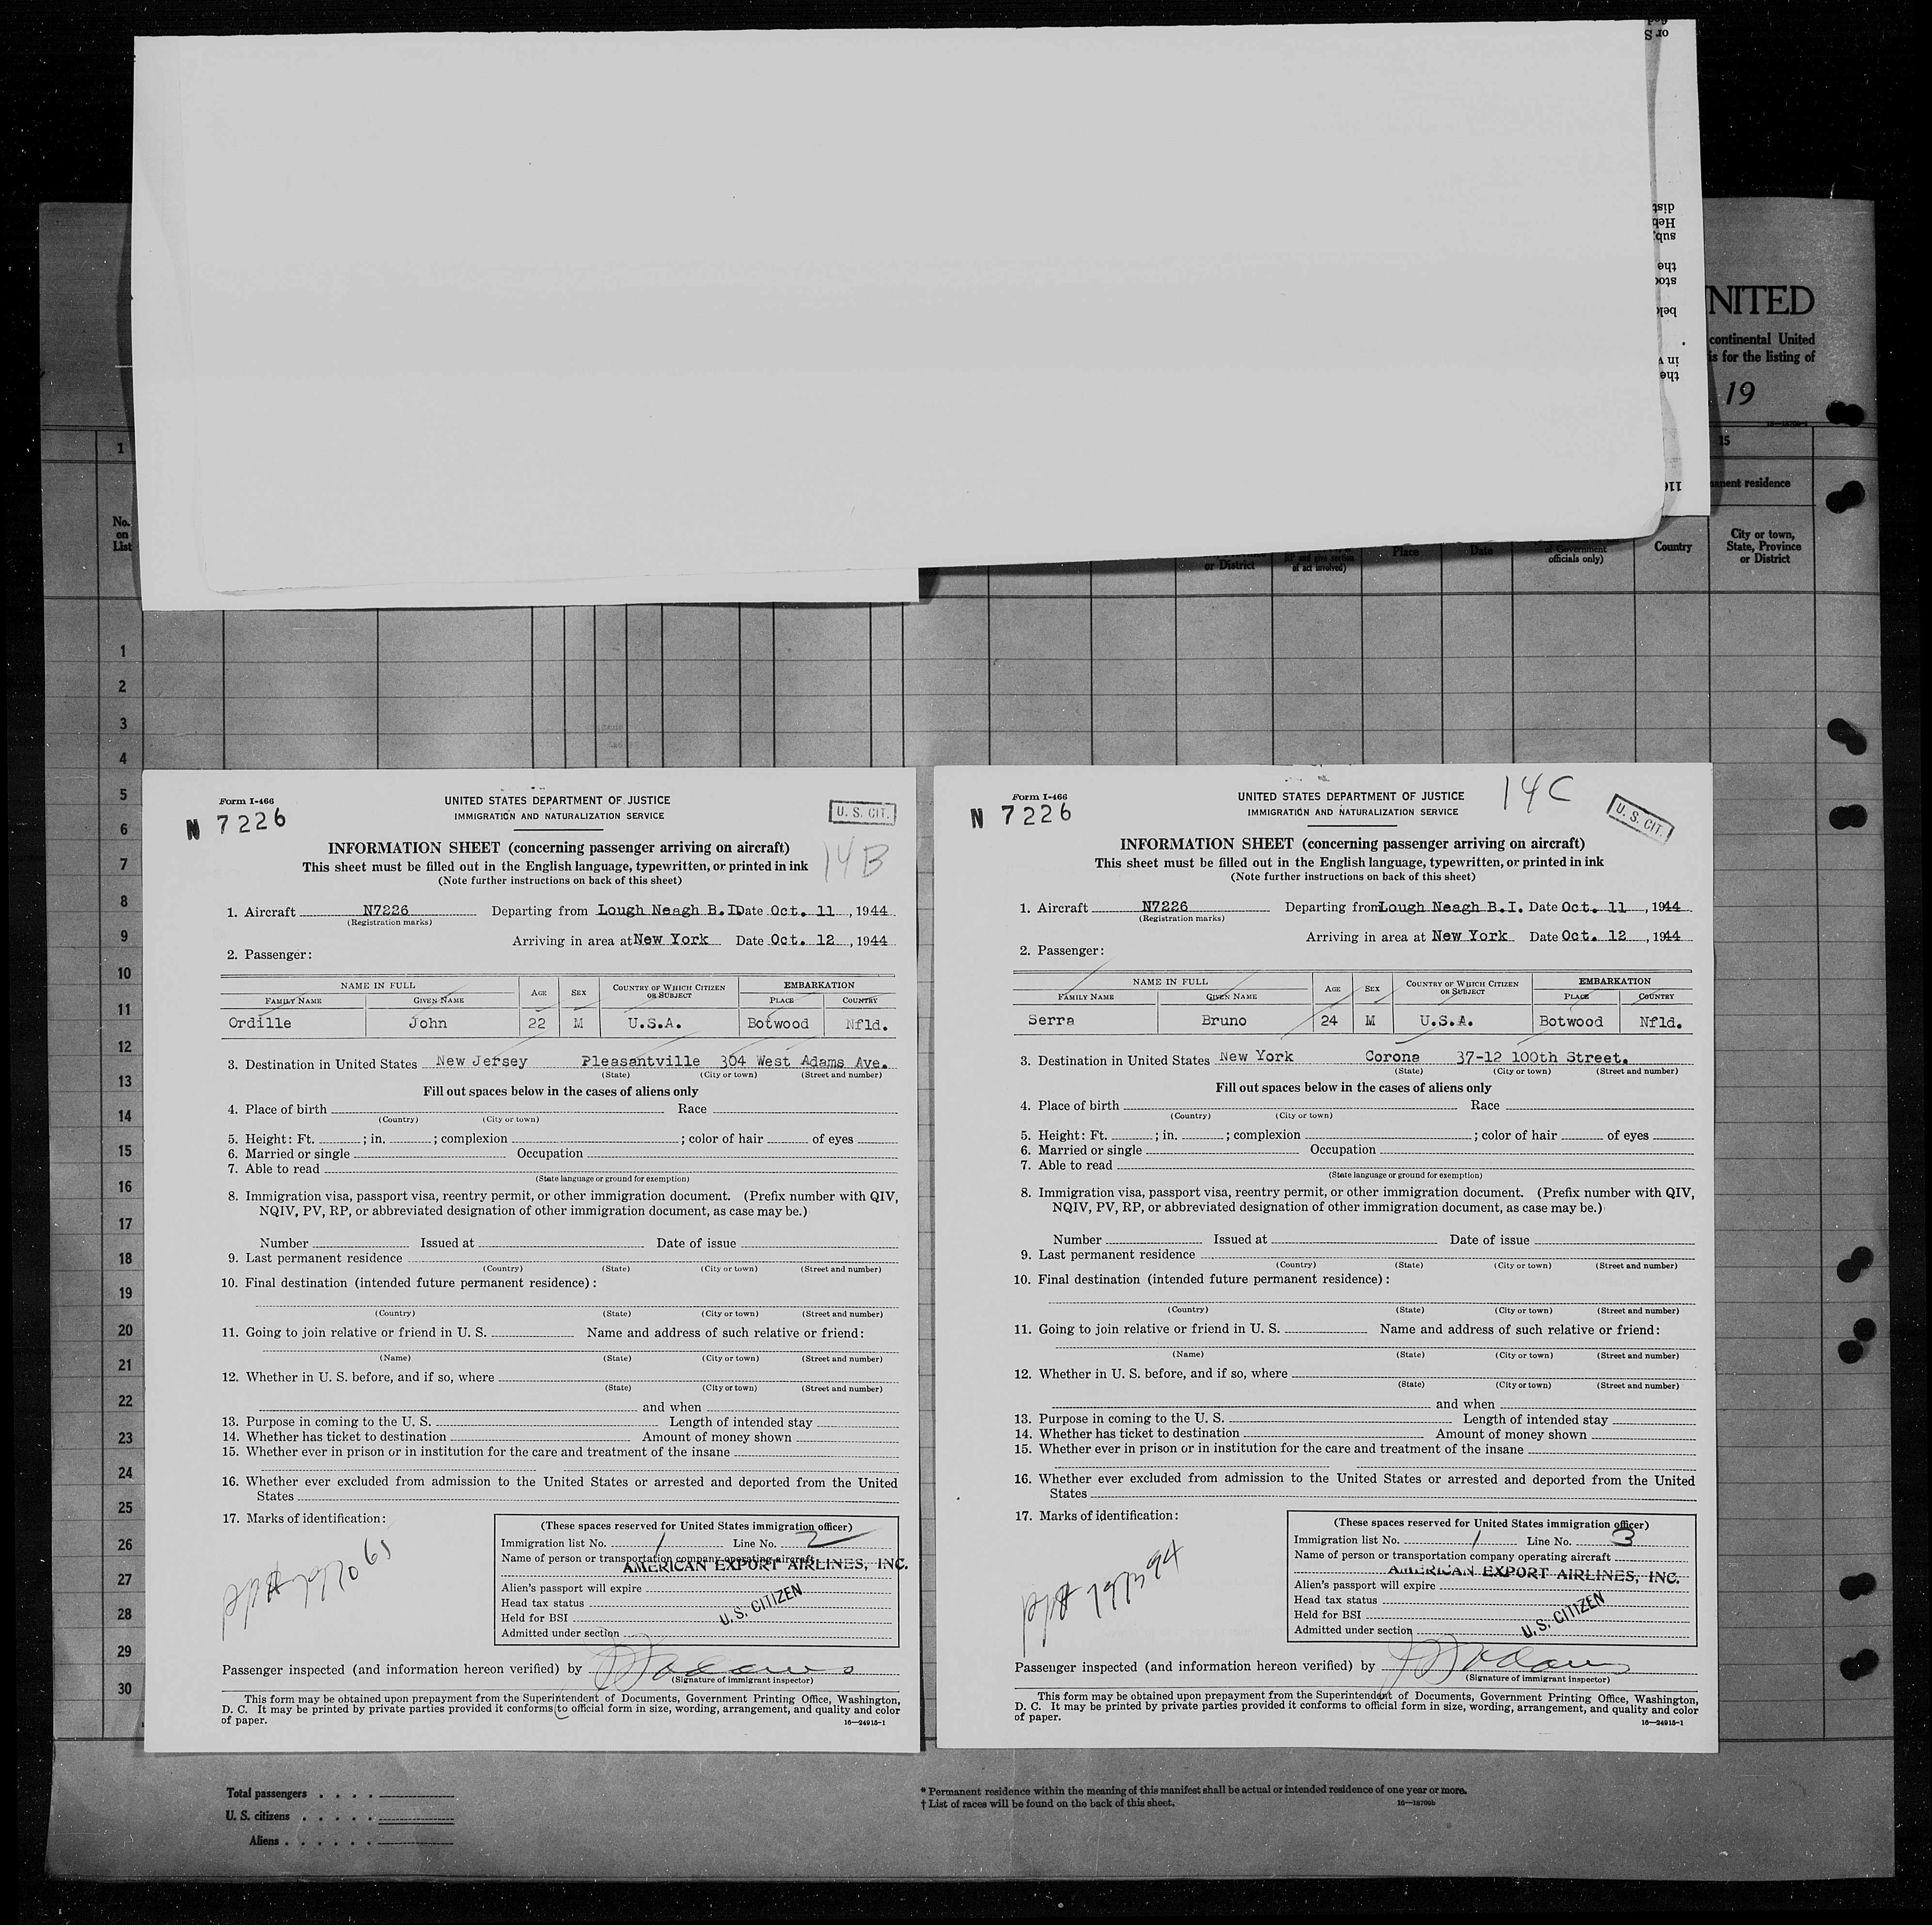 NITED
continental United
is for the listing of
19
1
15
No.
on
List
or District
RP and give section
of act involved)
Place
Date
of Government
officials only)
Country
City or town,
State, Province
or District
1
2
3
4
5
6
7
8
9
10
11
12
13
14
15
16
17
18
19
20
21
22
23
24
25
26
27
28
29
30
Form I-466
N 7226
UNITED STATES DEPARTMENT OF JUSTICE
IMMIGRATION AND NATURALIZATION SERVICE
U. S. CIT.
14B
INFORMATION SHEET (concerning passenger arriving on aircraft)
This sheet must be filled out in the English language, typewritten, or printed in ink
(Note further instructions on back of this sheet)
1. Aircraft N7226 Departing from Lough Neagh B.I. Date Oct. 11, 1944
(Registration marks)
Arriving in area at New York Date Oct. 12, 1944
2. Passenger:
NAME IN FULL AGE SEX COUNTRY OF WHICH CITIZEN OR SUBJECT EMBARKATION
FAMILY NAME GIVEN NAME PLACE COUNTRY
Ordille John 22 M U.S.A. Botwood Nfld.
3. Destination in United States New Jersey Pleasantville 304 West Adams Ave.
(State) (City or town) (Street and number)
Fill out spaces below in the cases of aliens only
4. Place of birth Race
(Country) (City or town)
5. Height: Ft. ; in. ; complexion ; color of hair of eyes
6. Married or single Occupation
7. Able to read
(State language or ground for exemption)
8. Immigration visa, passport visa, reentry permit, or other immigration document. (Prefix number with QIV,
NQIV, PV, RP, or abbreviated designation of other immigration document, as case may be.)
Number Issued at Date of issue
9. Last permanent residence
(Country) (State) (City or town) (Street and number)
10. Final destination (intended future permanent residence):
(Country) (State) (City or town) (Street and number)
11. Going to join relative or friend in U. S. Name and address of such relative or friend:
(Name) (State) (City or town) (Street and number)
12. Whether in U. S. before, and if so, where
(State) (City or town) (Street and number)
and when
13. Purpose in coming to the U. S. Length of intended stay
14. Whether has ticket to destination Amount of money shown
15. Whether ever in prison or in institution for the care and treatment of the insane
16. Whether ever excluded from admission to the United States or arrested and deported from the United
States
17. Marks of identification:
(These spaces reserved for United States immigration officer)
Immigration list No. 1 Line No. 2
Name of person or transportation company operating aircraft
AMERICAN EXPORT AIRLINES, INC.
Alien's passport will expire
Head tax status
Held for BSI
U. S. CITIZEN
Admitted under section
Passenger inspected (and information hereon verified) by
(Signature of immigrant inspector)
This form may be obtained upon prepayment from the Superintendent of Documents, Government Printing Office, Washington,
D. C. It may be printed by private parties provided it conforms to official form in size, wording, arrangement, and quality and color
of paper.
16—24915-1
Form I-466
N 7226
UNITED STATES DEPARTMENT OF JUSTICE
IMMIGRATION AND NATURALIZATION SERVICE
14C
U. S. CIT.
INFORMATION SHEET (concerning passenger arriving on aircraft)
This sheet must be filled out in the English language, typewritten, or printed in ink
(Note further instructions on back of this sheet)
1. Aircraft N7226 Departing from Lough Neagh B.I. Date Oct. 11, 1944
(Registration marks)
Arriving in area at New York Date Oct. 12, 1944
2. Passenger:
NAME IN FULL AGE SEX COUNTRY OF WHICH CITIZEN OR SUBJECT EMBARKATION
FAMILY NAME GIVEN NAME PLACE COUNTRY
Serra Bruno 24 M U.S.A. Botwood Nfld.
3. Destination in United States New York Corona 37-12 100th Street.
(State) (City or town) (Street and number)
Fill out spaces below in the cases of aliens only
4. Place of birth Race
(Country) (City or town)
5. Height: Ft. ; in. ; complexion ; color of hair of eyes
6. Married or single Occupation
7. Able to read
(State language or ground for exemption)
8. Immigration visa, passport visa, reentry permit, or other immigration document. (Prefix number with QIV,
NQIV, PV, RP, or abbreviated designation of other immigration document, as case may be.)
Number Issued at Date of issue
9. Last permanent residence
(Country) (State) (City or town) (Street and number)
10. Final destination (intended future permanent residence):
(Country) (State) (City or town) (Street and number)
11. Going to join relative or friend in U. S. Name and address of such relative or friend:
(Name) (State) (City or town) (Street and number)
12. Whether in U. S. before, and if so, where
(State) (City or town) (Street and number)
and when
13. Purpose in coming to the U. S. Length of intended stay
14. Whether has ticket to destination Amount of money shown
15. Whether ever in prison or in institution for the care and treatment of the insane
16. Whether ever excluded from admission to the United States or arrested and deported from the United
States
17. Marks of identification:
(These spaces reserved for United States immigration officer)
Immigration list No. 1 Line No. 3
Name of person or transportation company operating aircraft
AMERICAN EXPORT AIRLINES, INC.
Alien's passport will expire
Head tax status
Held for BSI
U. S. CITIZEN
Admitted under section
Passenger inspected (and information hereon verified) by
(Signature of immigrant inspector)
This form may be obtained upon prepayment from the Superintendent of Documents, Government Printing Office, Washington,
D. C. It may be printed by private parties provided it conforms to official form in size, wording, arrangement, and quality and color
of paper.
16—24915-1
Total passengers
U. S. citizens
Aliens
* Permanent residence within the meaning of this manifest shall be actual or intended residence of one year or more.
† List of races will be found on the back of this sheet.